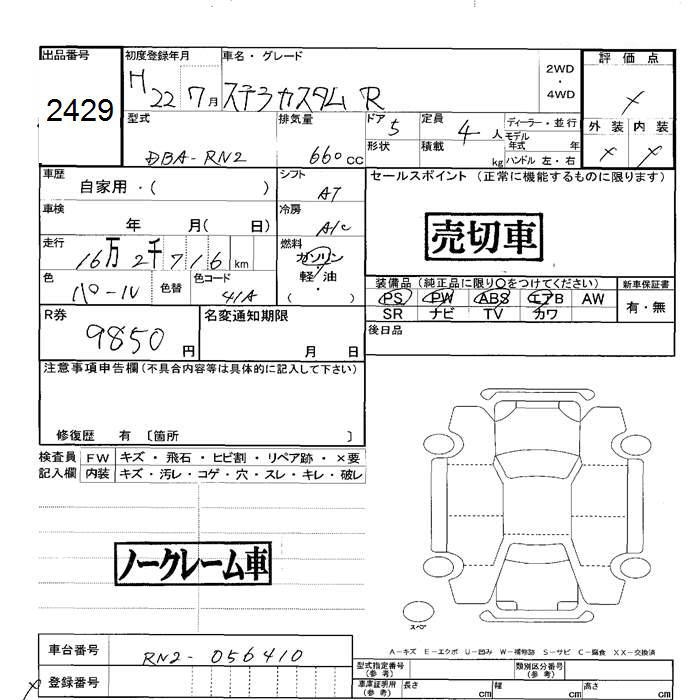 出品番号 初度登録年月 車名・グレード 評価点
2429 H 22 7月 ステラカスタム R 2WD ・ 4WD ×
型式 排気量 ドア 5 定員 4人 ディーラー・並行 外装 内装
モデル年式 年
DBA-RN2 660cc 形状 積載 kg ハンドル 左・右 × ×
車歴 シフト セールスポイント (正常に機能するものに限ります)
自家用・( ) AT
車検 冷房 売切車
年 月( 日) A/C
走行 燃料
16万 2千 716 km ガソリン
軽・油
色 色替 色コード ( ・ ) 装備品(純正品に限り○をつけてください) 新車保証書
パール 41A PS PW ABS エアB AW 有・無
SR ナビ TV カワ
R券 名変通知期限 後日品
9850円 月 日
注意事項申告欄(不具合内容等は具体的に記入して下さい)
修復歴 有 〔箇所 〕
検査員 FW キズ・飛石・ヒビ割・リペア跡・×要
記入欄 内装 キズ・汚レ・コゲ・穴・スレ・キレ・破レ
ノークレーム車
スペア
A-キズ E-エクボ U-凹み W-補修跡 S-サビ C-腐食 XX-交換済
車台番号 RN2-056410
型式指定番号(参考) 類別区分番号(参考)
登録番号 車庫証明用(参考) 長さ cm 幅 cm 高さ cm